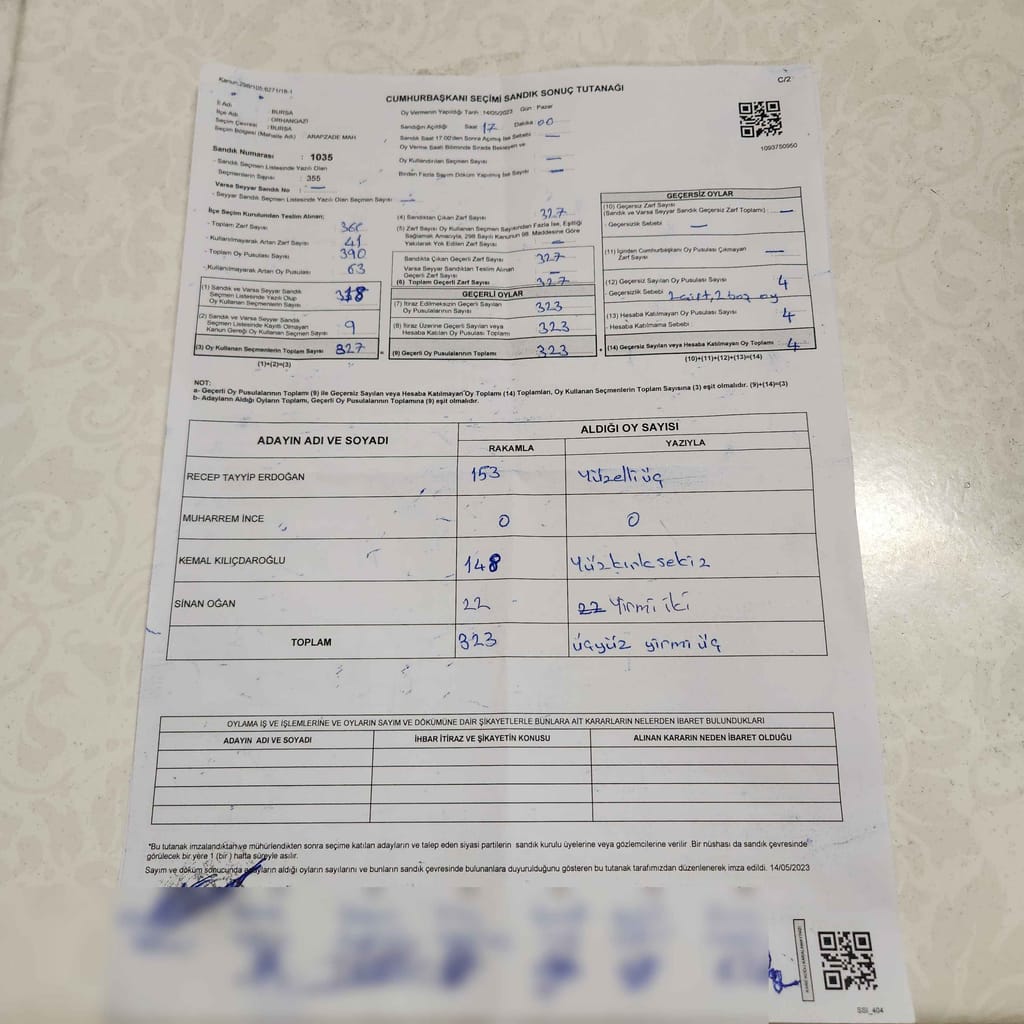 Kanun:298/105.6271/18-1
C/2
CUMHURBAŞKANI SEÇİMİ SANDIK SONUÇ TUTANAĞI
İl Adı : BURSA
İlçe Adı : ORHANGAZİ
Seçim Çevresi : BURSA
Seçim Bölgesi (Mahalle Adı) : ARAPZADE MAH.
Oy Vermenin Yapıldığı Tarih : 14/05/2023 Gün : Pazar
Sandığın Açıldığı Saat 17 Dakika 00
Sandık Saat 17.00'den Sonra Açılmış İse Sebebi —
Oy Verme Saati Bitiminde Sırada Bekleyen ve
Oy Kullandırılan Seçmen Sayısı —
Birden Fazla Sayım Döküm Yapılmış İse Sayısı —
1093750950
Sandık Numarası : 1035
- Sandık Seçmen Listesinde Yazılı Olan
Seçmenlerin Sayısı : 355
Varsa Seyyar Sandık No : —
- Seyyar Sandık Seçmen Listesinde Yazılı Olan Seçmen Sayısı : —
İlçe Seçim Kurulundan Teslim Alınan;
- Toplam Zarf Sayısı
- Kullanılmayarak Artan Zarf Sayısı 41
- Toplam Oy Pusulası Sayısı 390
- Kullanılmayarak Artan Oy Pusulası 63
(1) Sandık ve Varsa Seyyar Sandık
Seçmen Listesinde Yazılı Olup
Oy Kullanan Seçmenlerin Sayısı 318
(2) Sandık ve Varsa Seyyar Sandık
Seçmen Listesinde Kayıtlı Olmayan
Kanun Gereği Oy Kullanan Seçmen Sayısı 9
(3) Oy Kullanan Seçmenlerin Toplam Sayısı 327
(1)+(2)=(3)
(4) Sandıktan Çıkan Zarf Sayısı 327
(5) Zarf Sayısı Oy Kullanan Seçmen Sayısından Fazla İse, Eşitliği
Sağlamak Amacıyla, 298 Sayılı Kanunun 98. Maddesine Göre
Yakılarak Yok Edilen Zarf Sayısı —
Sandıkta Çıkan Geçerli Zarf Sayısı 327
Varsa Seyyar Sandıktan Teslim Alınan
Geçerli Zarf Sayısı —
(6) Toplam Geçerli Zarf Sayısı 327
GEÇERLİ OYLAR
(7) İtiraz Edilmeksizin Geçerli Sayılan
Oy Pusulasının Sayısı 323
(8) İtiraz Üzerine Geçerli Sayılan veya
Hesaba Katılan Oy Pusulası Sayısı 323
(9) Geçerli Oy Pusulalarının Toplamı 323
GEÇERSİZ OYLAR
(10) Geçersiz Zarf Sayısı
(Sandık ve Varsa Seyyar Sandık Geçersiz Zarf Toplamı) : —
- Geçersizlik Sebebi : —
(11) İçinden Cumhurbaşkanı Oy Pusulası Çıkmayan
Zarf Sayısı —
(12) Geçersiz Sayılan Oy Pusulası Sayısı 4
- Geçersizlik Sebebi : 2 çift, 2 boş oy
(13) Hesaba Katılmayan Oy Pusulası Sayısı 4
- Hesaba Katılmama Sebebi :
(14) Geçersiz Sayılan veya Hesaba Katılmayan Oy Toplamı 4
(10)+(11)+(12)+(13)=(14)
NOT:
a- Geçerli Oy Pusulalarının Toplamı (9) ile Geçersiz Sayılan veya Hesaba Katılmayan Oy Toplamı (14) Toplamları, Oy Kullanan Seçmenlerin Toplam Sayısına (3) eşit olmalıdır. (9)+(14)=(3)
b- Adayların Aldığı Oyların Toplamı, Geçerli Oy Pusulalarının Toplamına (9) eşit olmalıdır.
ADAYIN ADI VE SOYADI
ALDIĞI OY SAYISI
RAKAMLA YAZIYLA
RECEP TAYYİP ERDOĞAN 153 Yüzelli üç
MUHARREM İNCE 0 0
KEMAL KILIÇDAROĞLU 148 Yüzkırksekiz
SİNAN OĞAN 22 22 Yirmi iki
TOPLAM 323 üçyüz yirmi üç
OYLAMA İŞ VE İŞLEMLERİNE VE OYLARIN SAYIM VE DÖKÜMÜNE DAİR ŞİKAYETLERLE BUNLARA AİT KARARLARIN NELERDEN İBARET BULUNDUKLARI
ADAYIN ADI VE SOYADI İHBAR İTİRAZ VE ŞİKAYETİN KONUSU ALINAN KARARIN NEDEN İBARET OLDUĞU
*Bu tutanak imzalandıktan ve mühürlendikten sonra seçime katılan adayların ve talep eden siyasi partilerin sandık kurulu üyelerine veya gözlemcilerine verilir. Bir nüshası da sandık çevresinde
görülecek bir yere 1 (bir) hafta süreyle asılır.
Sayım ve döküm sonucunda adayların aldığı oyların sayılarını ve bunların sandık çevresinde bulunanlara duyurulduğunu gösteren bu tutanak tarafımızdan düzenlenerek imza edildi. 14/05/2023
SSI_404